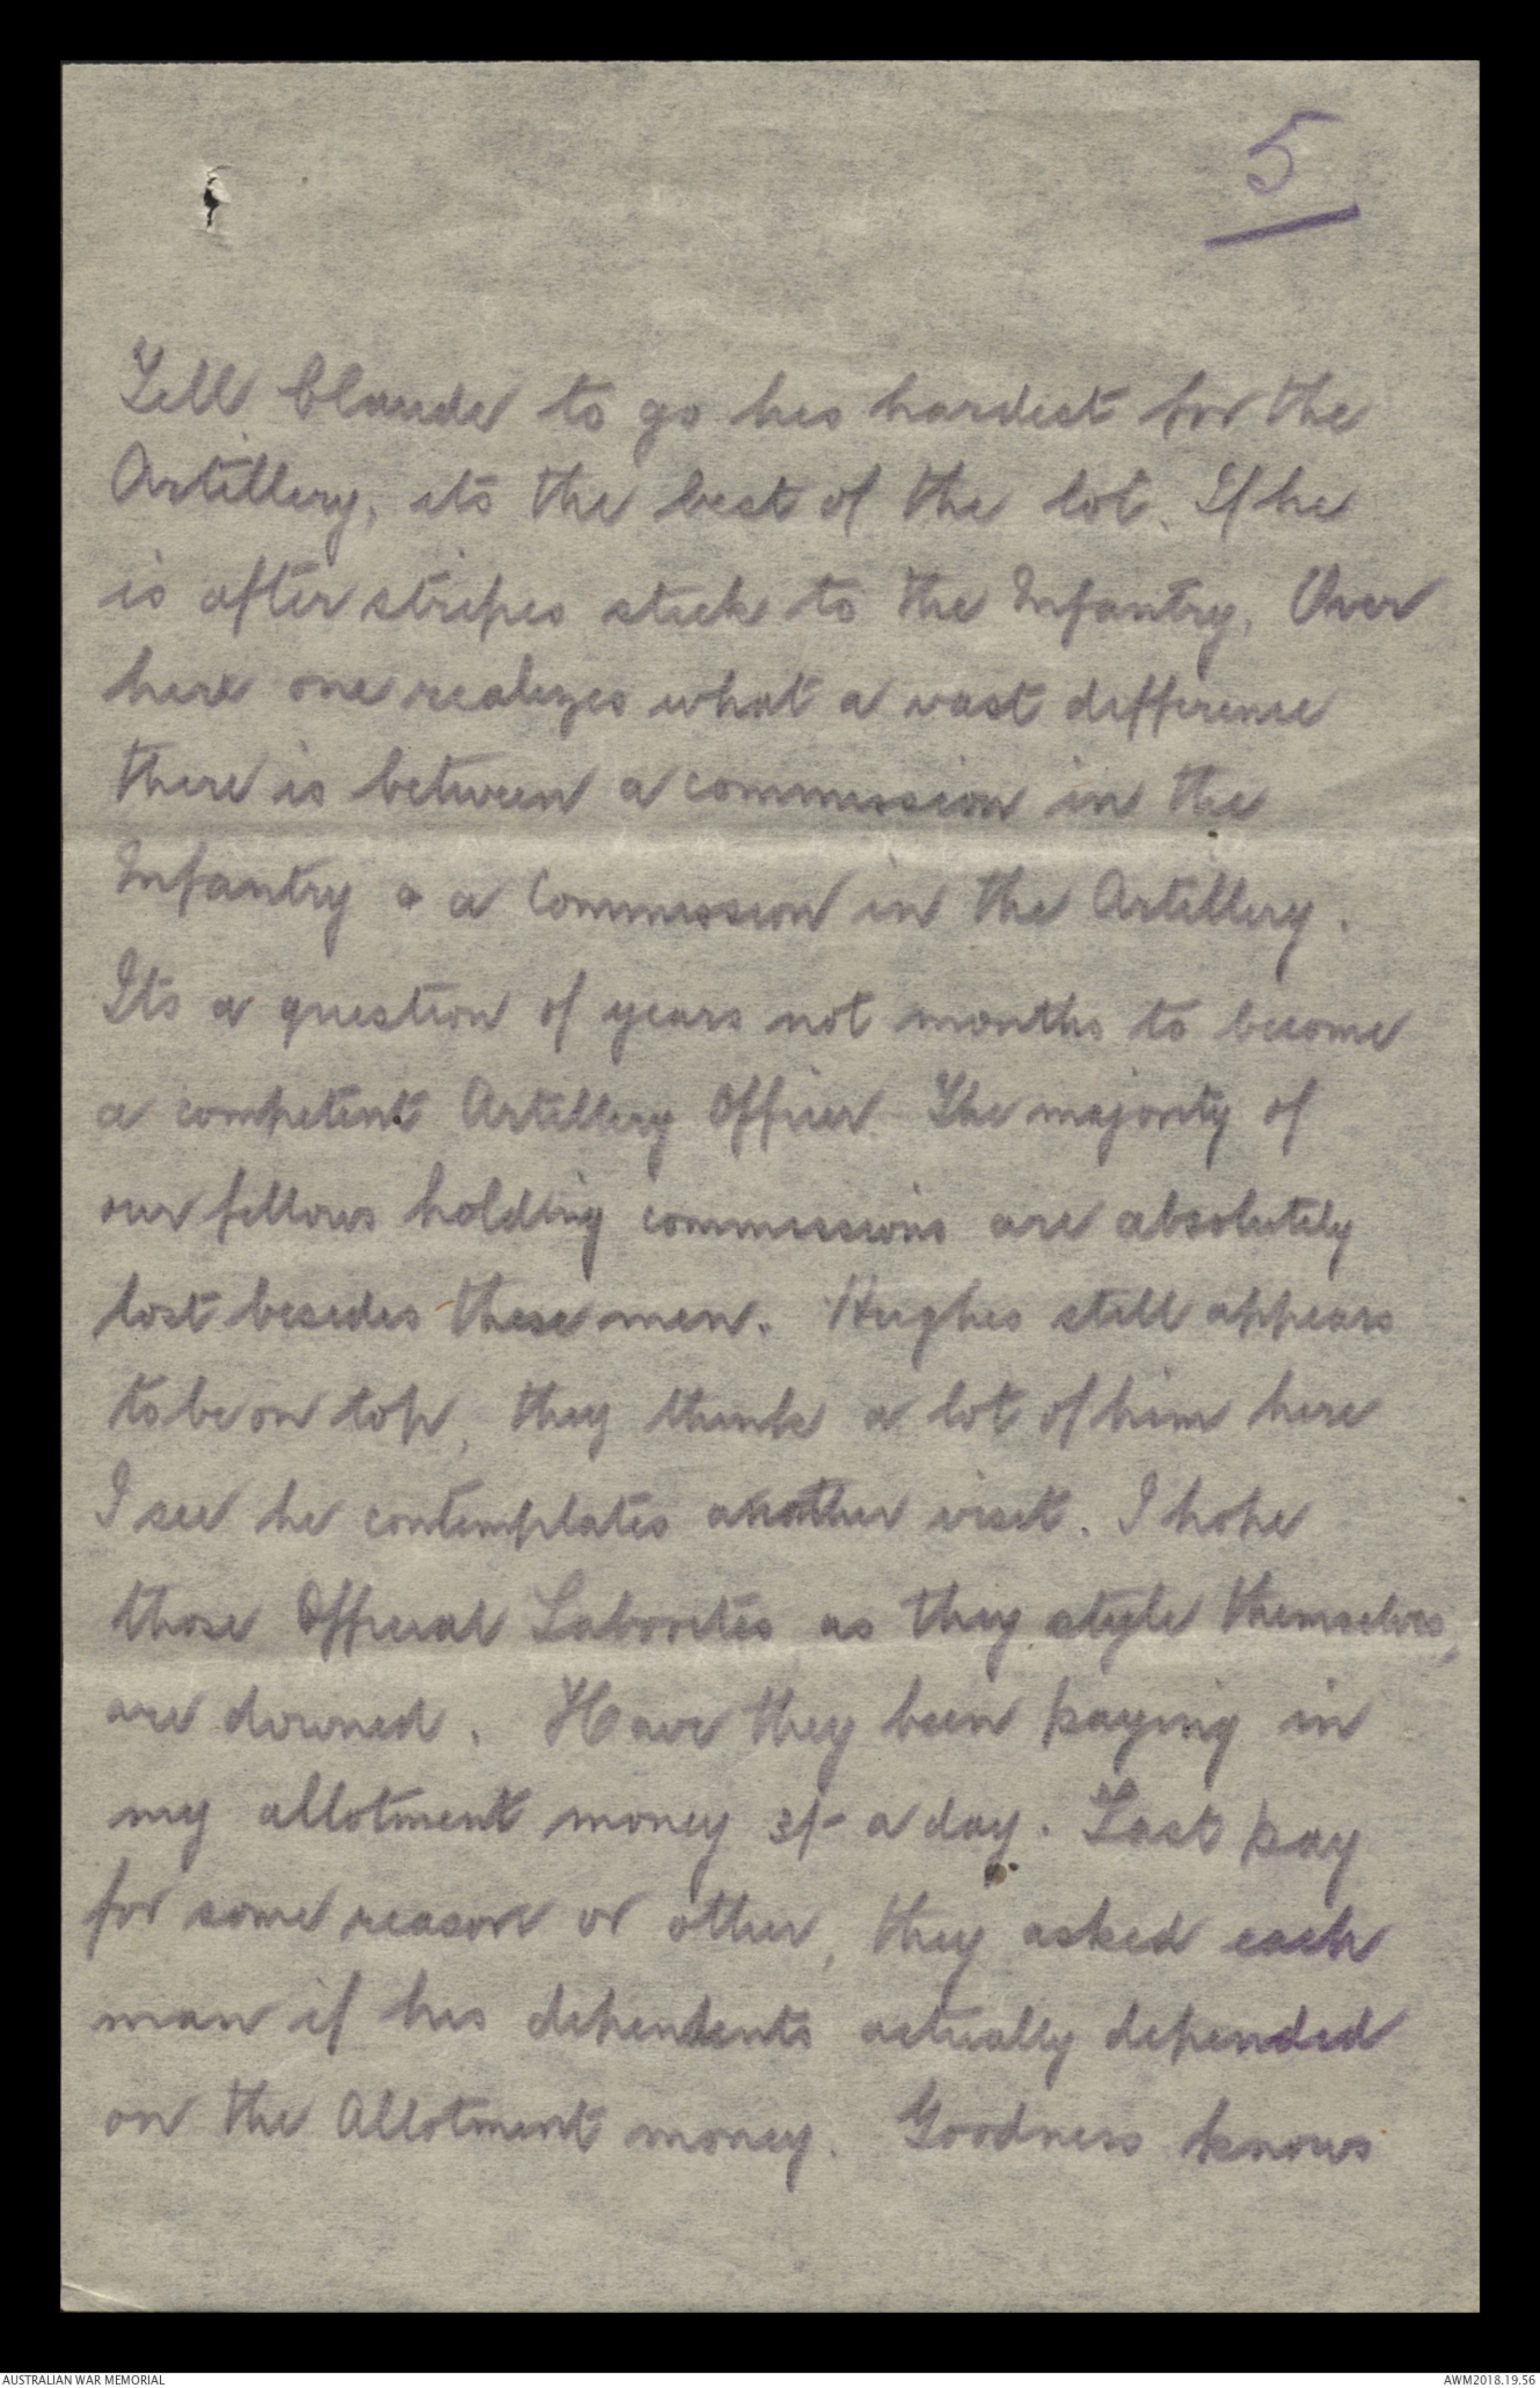 5
Tell Claude to go his hardest for the
Artillery, its the best of the lot. If he
is after stripes stick to the Infantry. Over
here one realizes what a vast difference
there is between a commission in the
Infantry & a Commission in the Artillery.
Its a question of years not months to become
a competent Artillery Officer. The majority of
our fellows holding commissions are absolutely
lost besides these men. Hughes still appears
to be on top, they think a lot of him here
I see he contemplates another visit. I hope
those Official Laborites as they style themselves,
are downed. Have they been paying in
my allotment money 3/- a day. Last pay
for some reason or other, they asked each
man if his dependents actually depended
on the Allotment money. Goodness knows
AUSTRALIAN WAR MEMORIAL
AWM2018.19.56